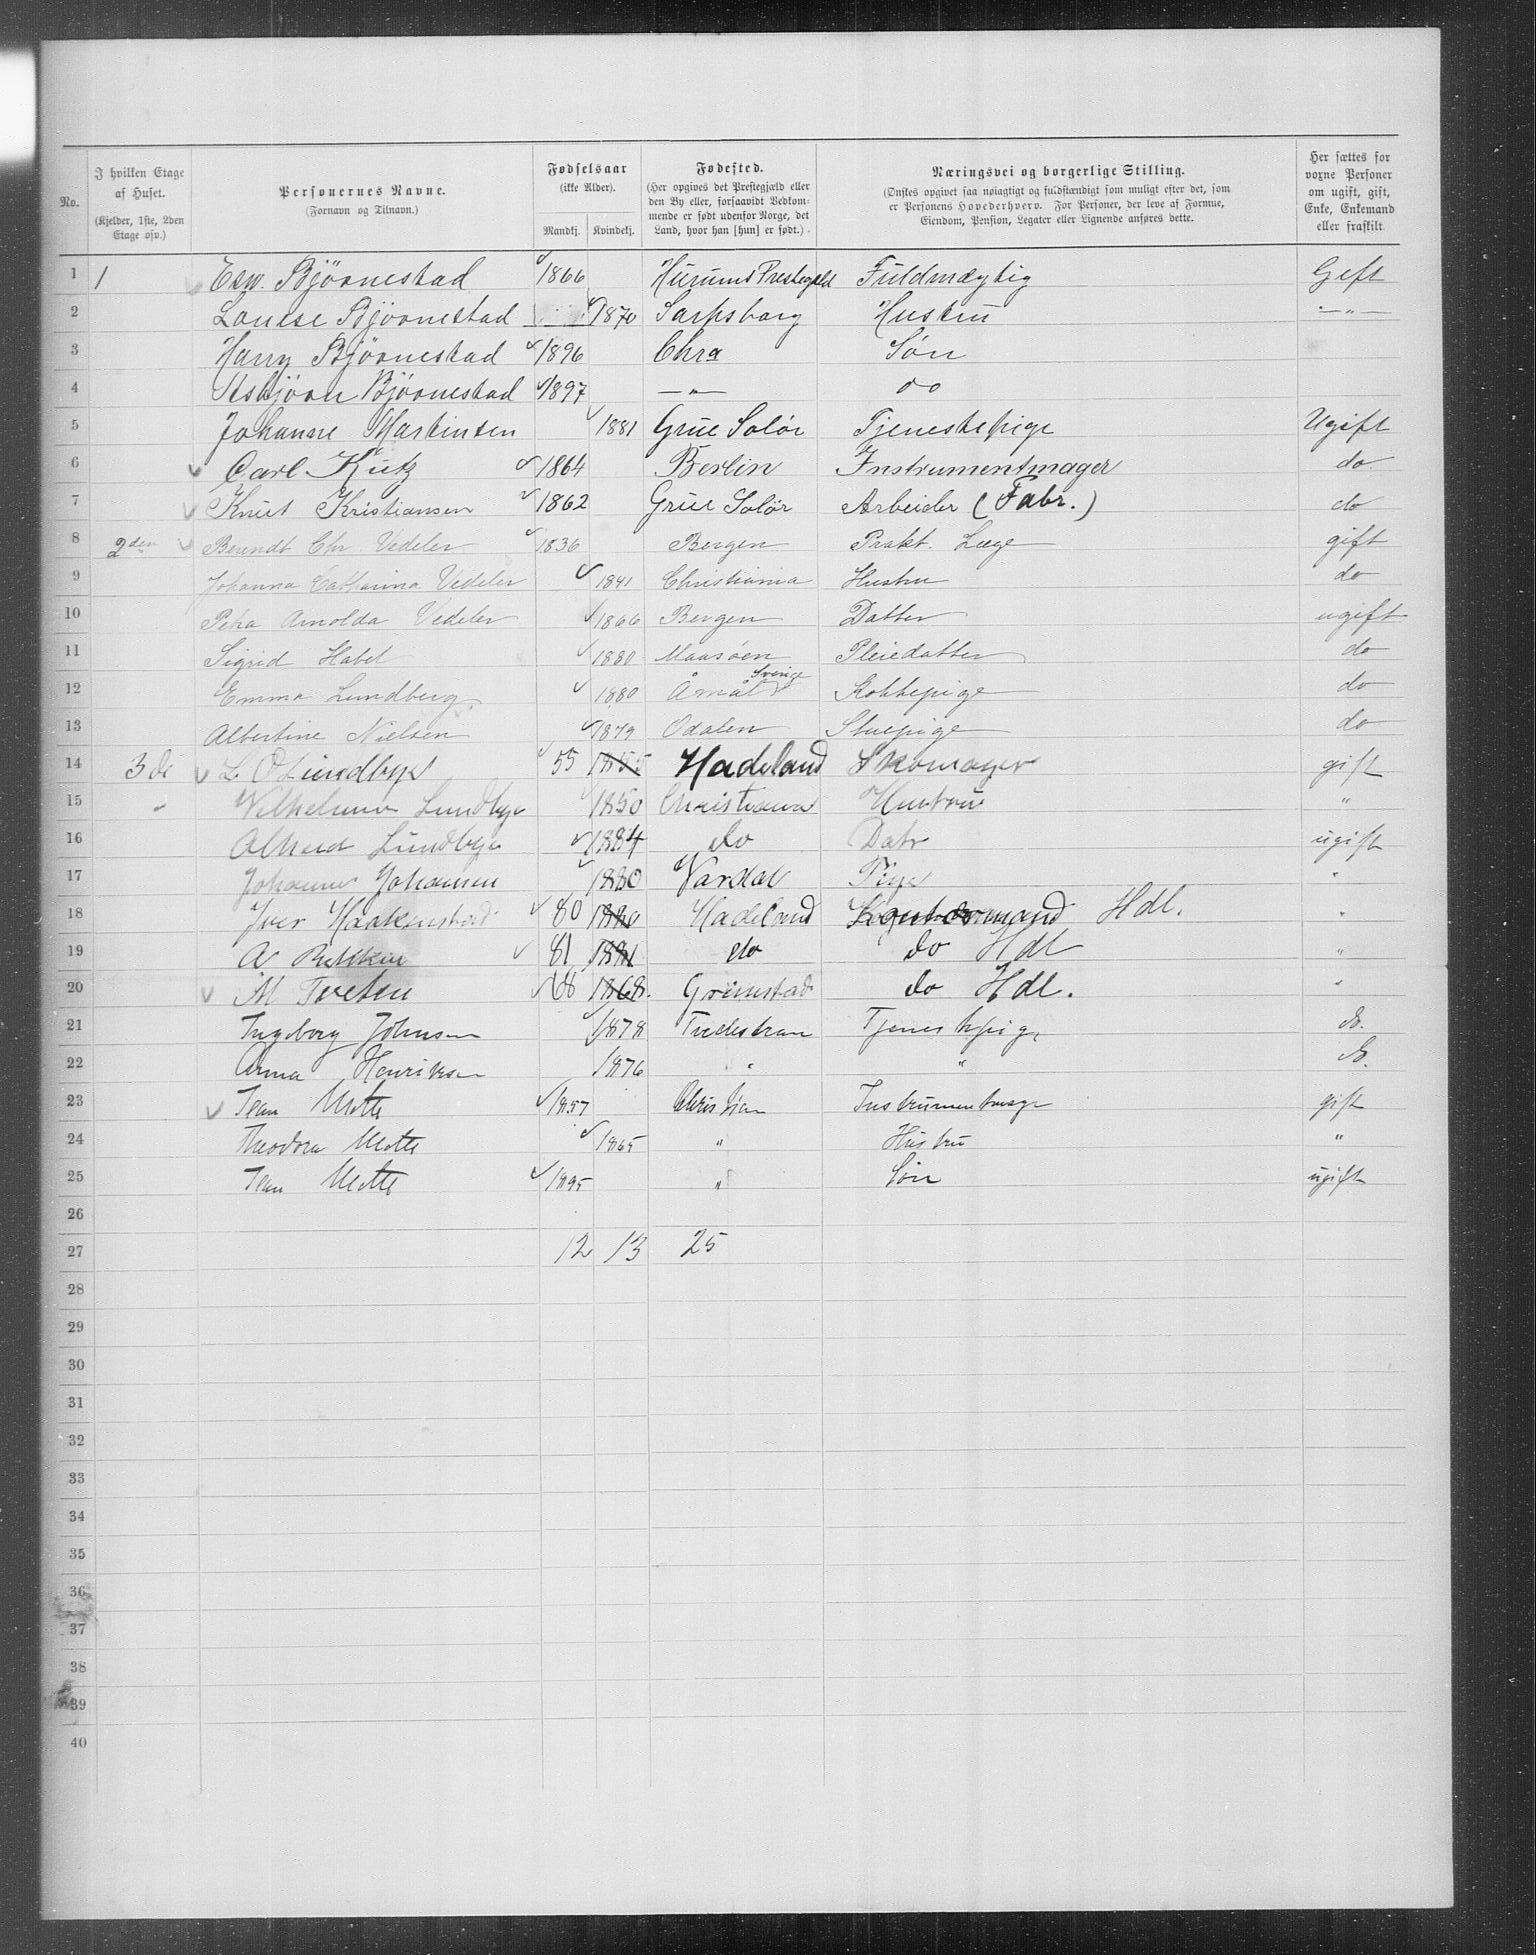 No.
I hvilken Etage af Huset.
(Kjelder, 1ste, 2den Etage osv.)
Personernes Navne.
(Fornavn og Tilnavn.)
Fødselsaar
(ikke Alder).
Mandkj. Kvindekj.
Fødested.
(Her opgives det Prestegjæld eller den By eller, forsaavidt Vedkommende er født udenfor Norge, det Land, hvor han [hun] er født.)
Næringsvei og borgerlige Stilling.
(Ønskes opgivet saa nøiagtigt og fuldstændigt som muligt efter det, som er Personens Hovederhverv. For Personer, der leve af Formue, Eiendom, Pension, Legater eller Lignende anføres dette.
Her sættes for voxne Personer om ugift, gift, Enke, Enkemand eller fraskilt
1 1 Bjørnestad 1866 Hurums Fuldmægtig Gift
2 Louise Bjørnestad 1870 Sarpsborg Hustru —„—
3 Harry Bjørnestad 1896 Chra Søn
4 Asbjørn Bjørnestad 1897 —„— do
5 Johanne Martinsen 1881 Grue Solør Tjenestepige Ugift
6 Carl Kutz 1864 Berlin Instrumentmager do
7 Knut Kristiansen 1862 Grue Solør Arbeider (Fabr.) do
8 2den Berendt Chr. Vedeler 1836 Bergen Prakt. Læge gift
9 Johanna Catharina Vedeler 1841 Christiania Hustru do
10 Petra Arnolda Vedeler 1866 Bergen Datter ugift
11 Sigrid Habel 1880 Maasøen Pleiedatter do
12 Emma Lundberg 1880 Åmål Sverige Kokkepige do
13 Albertine Nielsen 1879 Odalen Stuepige do
14 3de L. O Lundbye 55 1855 Hadeland Skomager gift
15 „ Vilhelmine Lundbye 1850 Christiania Hustru „
16 Lundbye 1884 do Datr ugift
17 Johanne Johansen 1880 Vardal Pige „
18 Iver Haakenstad 80 1880 Hadeland Kontormand Hdl. „
19 A 81 1881 do do Hdl „
20 M Tveten 68 1868. Grimstad do Hdl. „
21 Ingeborg Johnsen 1878 Tvedestran Tjenestepige do.
22 Anna Henriksen 1876 „ „ do.
23 Jean Mette 1857 Christian Instrumentmager gift
24 Theodora Mette 1865 „ Hustru „
25 Jean Mette 1895 „ Søn ugift
26
27 12 13 25
28
29
30
31
32
33
34
35
36
37
38
39
40